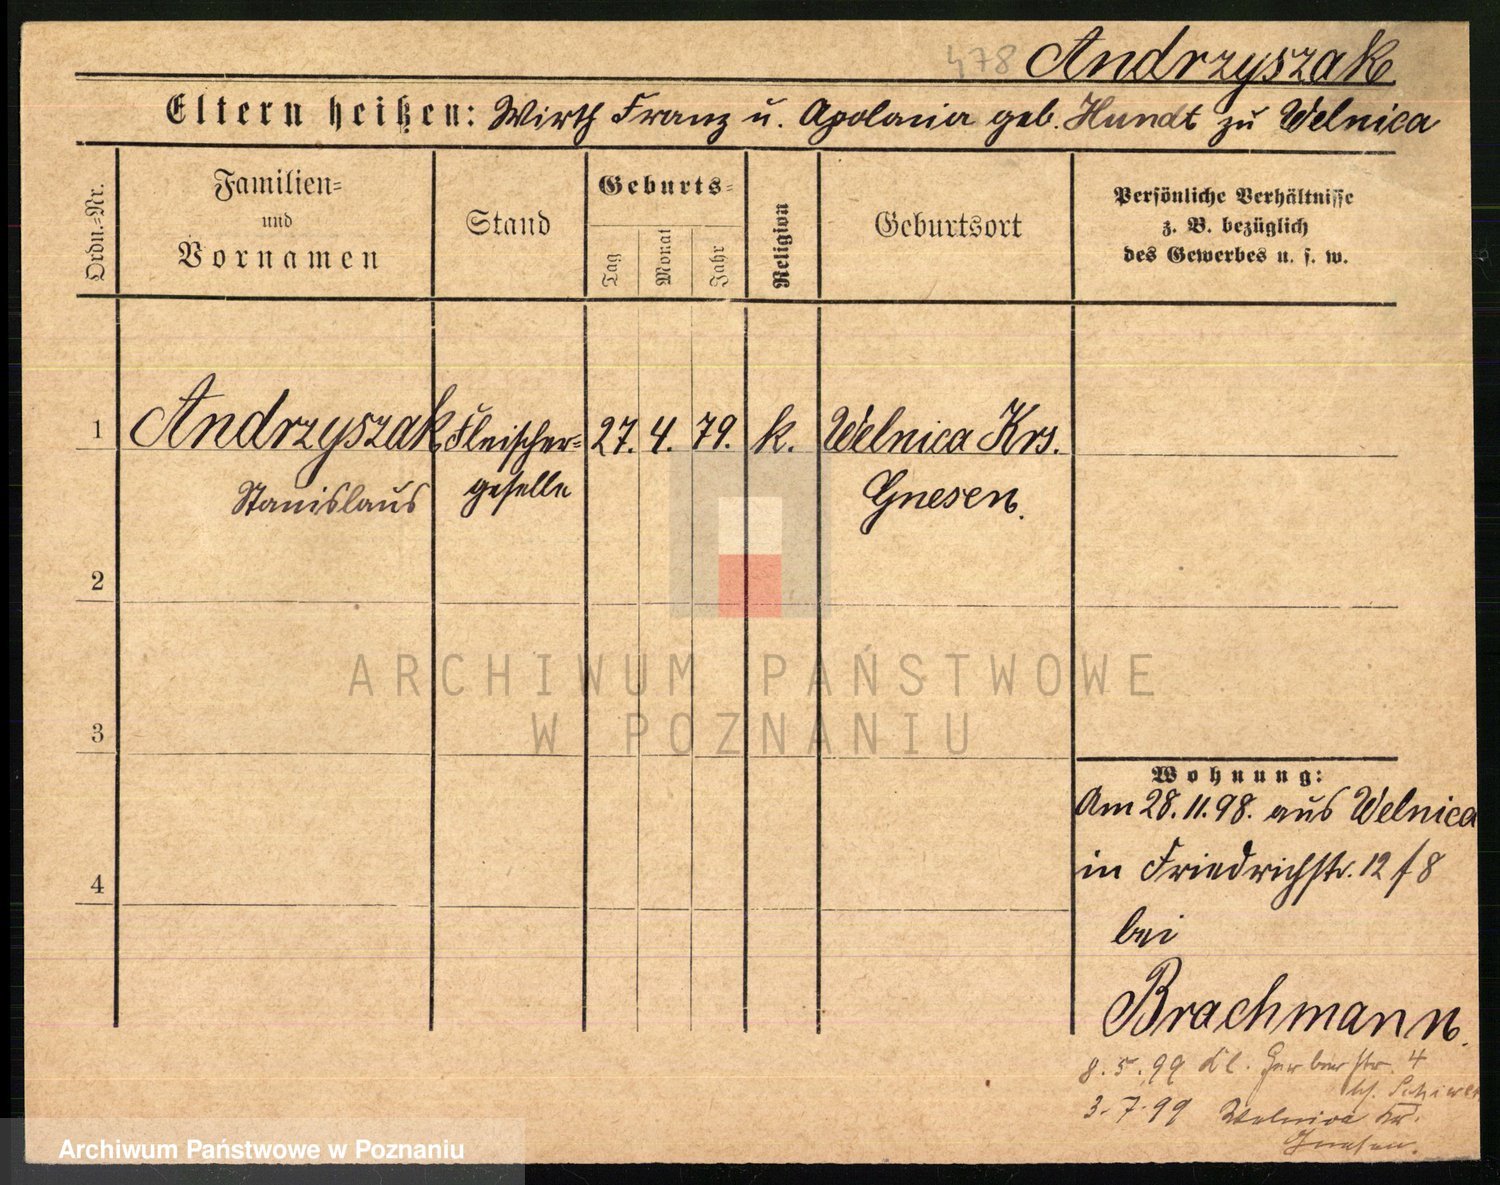 478 Andrzyszak
Eltern heißen: Wirth Franz u. Apolonia geb. Hundt zu Welnica
Ordn.-Nr.
Familien-
und
Vornamen
Stand
Geburts-
Tag
Monat
Jahr
Religion
Geburtsort
Persönliche Verhältnisse
z. B. bezüglich
des Gewerbes u. s. w.
1 Andrzyszak Fleischer- 27. 4. 79. k. Welnica Krs.
Stanislaus geselle Gnesen.
2
3
4
ARCHIWUM PAŃSTWOWE
W POZNANIU
Wohnung:
Am 28.11.98. aus Welnica
in Friedrichstr. 12 f 8
bei
Brachmann.
8.5.99 Kl. Gerberstr. 4
3.7.99 Welnica Kr.
Gnesen.
Archiwum Państwowe w Poznaniu